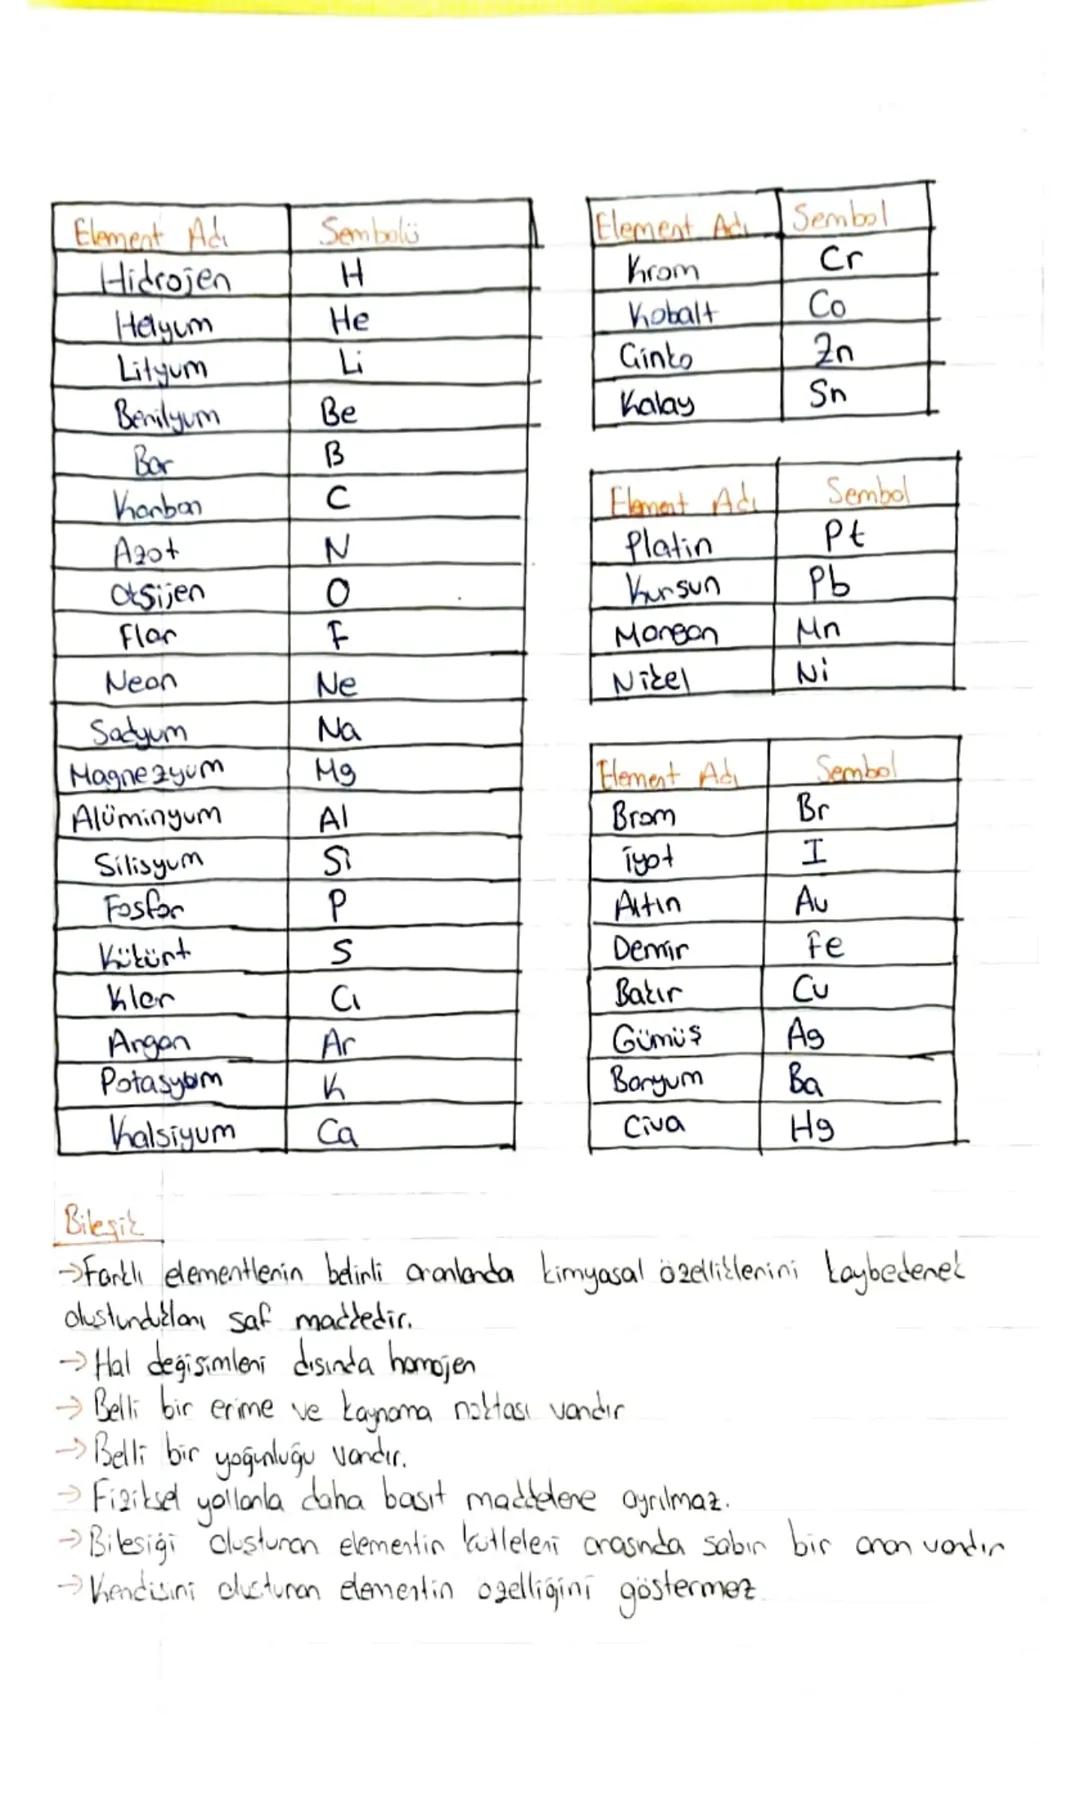 Element Adı Sembolü
Hidrojen H
Helyum He
Lityum Li
Berilyum Be
Bor B
Karbon C
Azot N
Oksijen O
Flor F
Neon Ne
Sodyum Na
Magnezyum Mg
Alüminyum Al
Silisyum Si
Fosfor P
Kükürt S
Klor Cl
Argon Ar
Potasyum K
Kalsiyum Ca
Element Adı Sembol
Krom Cr
Kobalt Co
Çinko Zn
Kalay Sn
Element Adı Sembol
Platin Pt
Kurşun Pb
Mangan Mn
Nikel Ni
Element Adı Sembol
Brom Br
İyot I
Altın Au
Demir Fe
Bakır Cu
Gümüş Ag
Baryum Ba
Civa Hg
Bileşik
→Farklı elementlerin belirli oranlarda kimyasal özelliklerini kaybederek
oluşturdukları saf maddedir.
→Hal değişimleri dışında homojen
→Belli bir erime ve kaynama noktası vardır
→Belli bir yoğunluğu vardır.
→Fiziksel yollarla daha basit maddelere ayrılmaz.
→Bileşiği oluşturan elementin kütleleri arasında sabin bir oran vardır
→Kendisini oluşturan elementin özelliğini göstermez.